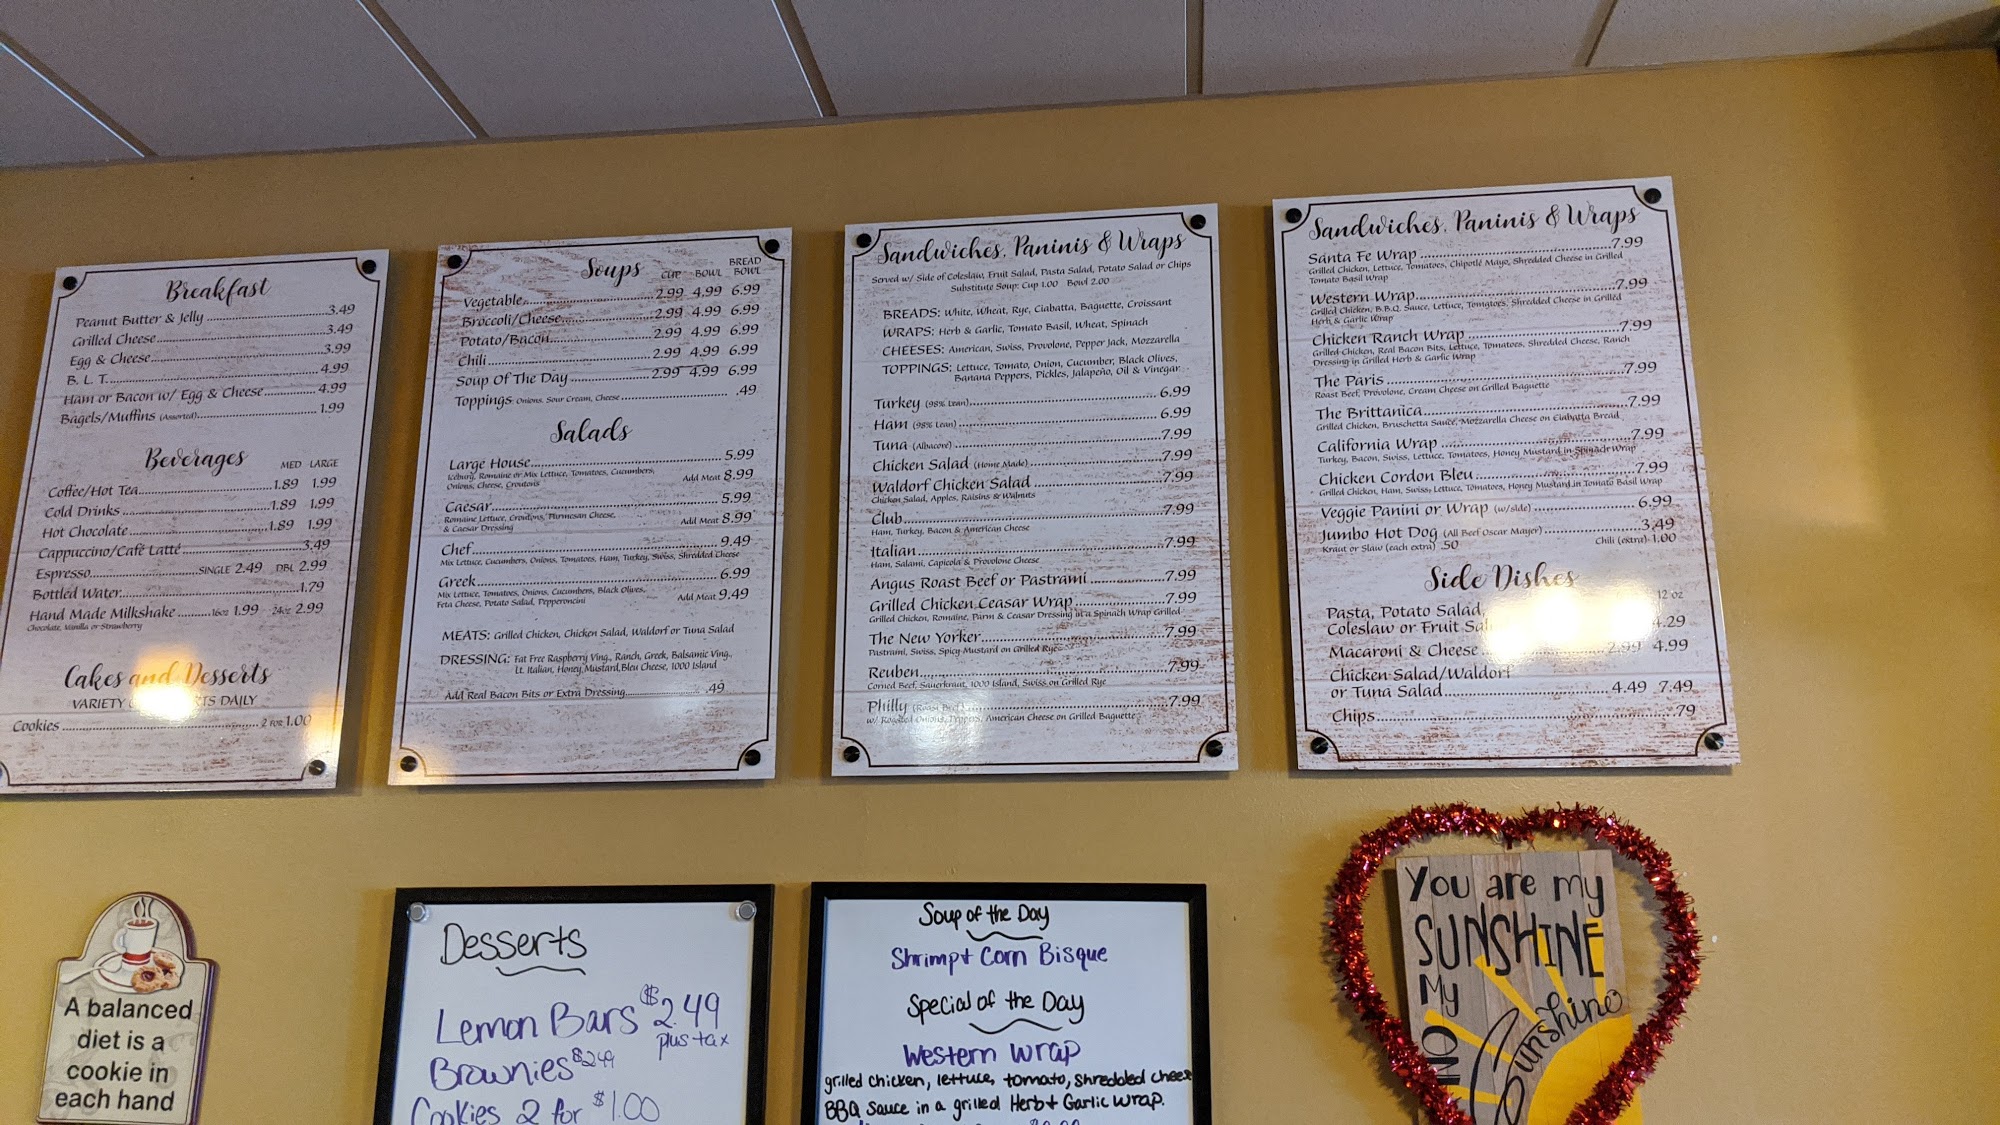 Breakfast
Peanut Butter & Jelly 3.49
Grilled Cheese 3.49
Egg & Cheese 3.99
B. L. T. 4.99
Ham or Bacon w/ Egg & Cheese 4.99
Bagels/Muffins (Assorted) 1.99
Beverages
MED LARGE
Coffee/Hot Tea 1.89 1.99
Cold Drinks 1.89 1.99
Hot Chocolate 1.89 1.99
Cappuccino/Café Latté 3.49
Espresso SINGLE 2.49 DBL 2.99
Bottled Water 1.79
Hand Made Milkshake 16oz 1.99 24oz 2.99
Chocolate, Vanilla or Strawberry
Cakes and Desserts
VARIETY DAILY
Cookies 2 FOR 1.00
Soups
CUP BOWL BREAD BOWL
Vegetable 2.99 4.99 6.99
Broccoli/Cheese 2.99 4.99 6.99
Potato/Bacon 2.99 4.99 6.99
Chili 2.99 4.99 6.99
Soup Of The Day 2.99 4.99 6.99
Toppings Onions, Sour Cream, Cheese .49
Salads
Large House 5.99
Iceburg, Romaine or Mix Lettuce, Tomatoes, Cucumbers, Add Meat 8.99
Onions, Cheese, Croutons
Caesar 5.99
Romaine Lettuce, Croutons, Parmesan Cheese, Add Meat 8.99
& Caesar Dressing
Chef 9.49
Mix Lettuce, Cucumbers, Onions, Tomatoes, Ham, Turkey, Swiss, Shredded Cheese
Greek 6.99
Mix Lettuce, Tomatoes, Onions, Cucumbers, Black Olives, Add Meat 9.49
Feta Cheese, Potato Salad, Pepperoncini
MEATS: Grilled Chicken, Chicken Salad, Waldorf or Tuna Salad
DRESSING: Fat Free Raspberry Ving., Ranch, Greek, Balsamic Ving.,
Lt. Italian, Honey Mustard, Bleu Cheese, 1000 Island
Add Real Bacon Bits or Extra Dressing .49
Sandwiches, Paninis & Wraps
Served w/ Side of Coleslaw, Fruit Salad, Pasta Salad, Potato Salad or Chips
Substitute Soup: Cup 1.00 Bowl 2.00
BREADS: White, Wheat, Rye, Ciabatta, Baguette, Croissant
WRAPS: Herb & Garlic, Tomato Basil, Wheat, Spinach
CHEESES: American, Swiss, Provolone, Pepper Jack, Mozzarella
TOPPINGS: Lettuce, Tomato, Onion, Cucumber, Black Olives,
Banana Peppers, Pickles, Jalapeño, Oil & Vinegar
Turkey (98% Lean) 6.99
Ham (98% Lean) 6.99
Tuna (Albacore) 7.99
Chicken Salad (Home Made) 7.99
Waldorf Chicken Salad 7.99
Chicken Salad, Apples, Raisins & Walnuts
Club 7.99
Ham, Turkey, Bacon & American Cheese
Italian 7.99
Ham, Salami, Capicola & Provolone Cheese
Angus Roast Beef or Pastrami 7.99
Grilled Chicken Ceasar Wrap 7.99
Grilled Chicken, Romaine, Parm & Ceasar Dressing in a Spinach Wrap Grilled
The New Yorker 7.99
Pastrami, Swiss, Spicy Mustard on Grilled Rye
Reuben 7.99
Corned Beef, Sauerkraut, 1000 Island, Swiss on Grilled Rye
Philly (Roast Beef) 7.99
w/ Roasted Onions, Peppers, American Cheese on Grilled Baguette
Sandwiches, Paninis & Wraps
Santa Fe Wrap 7.99
Grilled Chicken, Lettuce, Tomatoes, Chipotle Mayo, Shredded Cheese in Grilled
Tomato Basil Wrap
Western Wrap 7.99
Grilled Chicken, B.B.Q. Sauce, Lettuce, Tomatoes, Shredded Cheese in Grilled
Herb & Garlic Wrap
Chicken Ranch Wrap 7.99
Grilled Chicken, Real Bacon Bits, Lettuce, Tomatoes, Shredded Cheese, Ranch
Dressing in Grilled Herb & Garlic Wrap
The Paris 7.99
Roast Beef, Provolone, Cream Cheese on Grilled Baguette
The Brittanica 7.99
Grilled Chicken, Bruschetta Sauce, Mozzarella Cheese on Ciabatta Bread
California Wrap 7.99
Turkey, Bacon, Swiss, Lettuce, Tomatoes, Honey Mustard in Spinach Wrap
Chicken Cordon Bleu 7.99
Grilled Chicken, Ham, Swiss, Lettuce, Tomatoes, Honey Mustard in Tomato Basil Wrap
Veggie Panini or Wrap (w/side) 6.99
Jumbo Hot Dog (All Beef Oscar Mayer) 3.49
Kraut or Slaw (each extra) .50 Chili (extra) 1.00
Side Dishes
12 OZ
Pasta, Potato Salad,
Coleslaw or Fruit 4.29
Macaroni & Cheese 2.99 4.99
Chicken Salad/Waldorf
or Tuna Salad 4.49 7.49
Chips .79
A balanced
diet is a
cookie in
each hand
Desserts
Lemon Bars $2.49
plus tax
Brownies $2.49
Cookies 2 for $1.00
Soup of the Day
Shrimp & Corn Bisque
Special of the Day
Western Wrap
grilled chicken, lettuce, tomato, shredded cheese
BBQ Sauce in a grilled Herb & Garlic Wrap.
You are my
SUNSHINE
My
ON
Sunshine